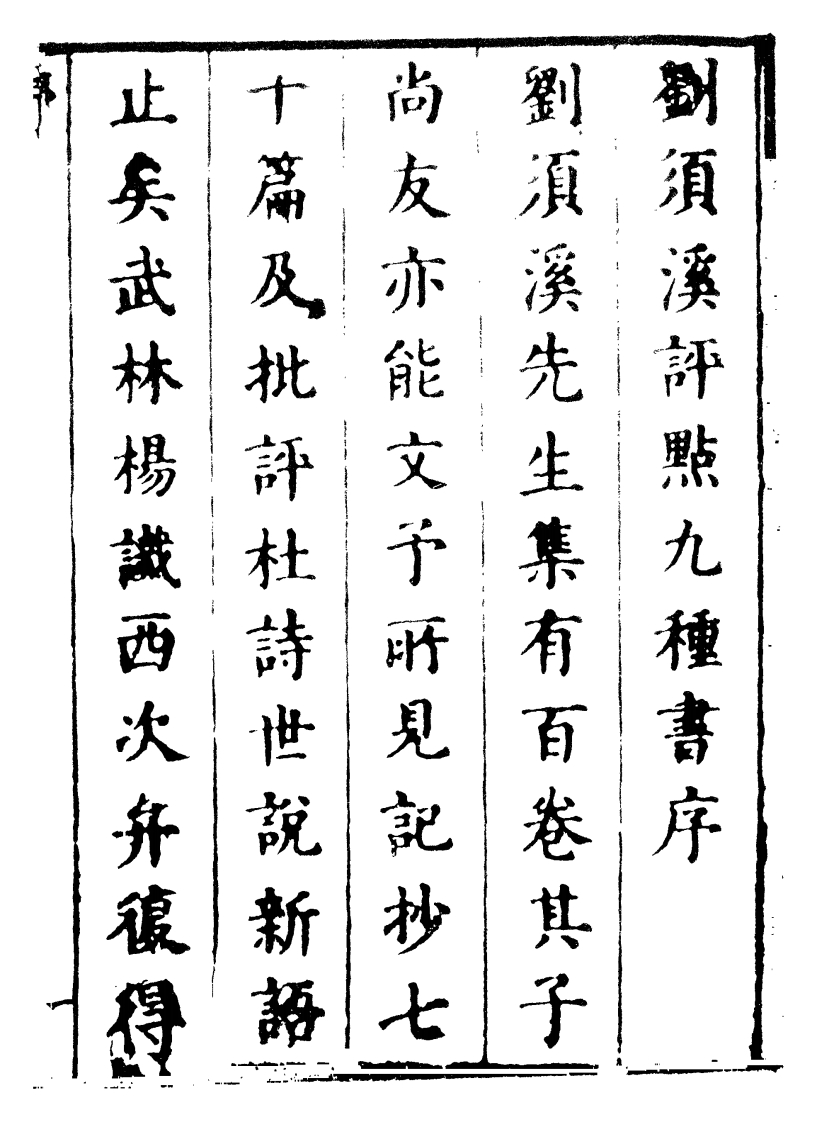 劉須溪評點九種書序
劉須溪先生集有百卷其子
尚友亦能文予所見記抄七
十篇及批評杜詩世說新語
止矣武林楊讖西次弁復得